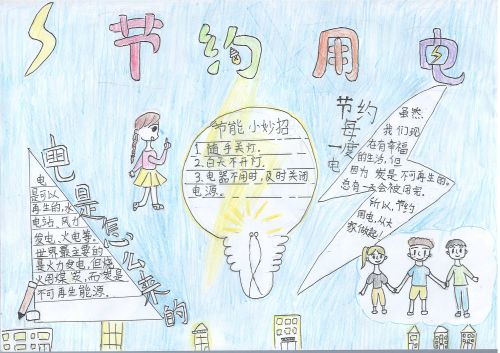 节约用电
节能小妙招
1.随手关灯.
2.白天不开灯.
3.电器不用时,及时关闭
电源.
节约每一度电
虽然
我们现
在有幸福
的生活,但
因为 炭是不可再生的.
总有一天会被用完.
所以,节约
用电,从大
家做起!
电是怎么来的
电
是可以
再生的,水
电站、风力
发电、火电等。
世界最主要的
是火力发电,但烧
火用煤炭,而炭是
不可再生能源。